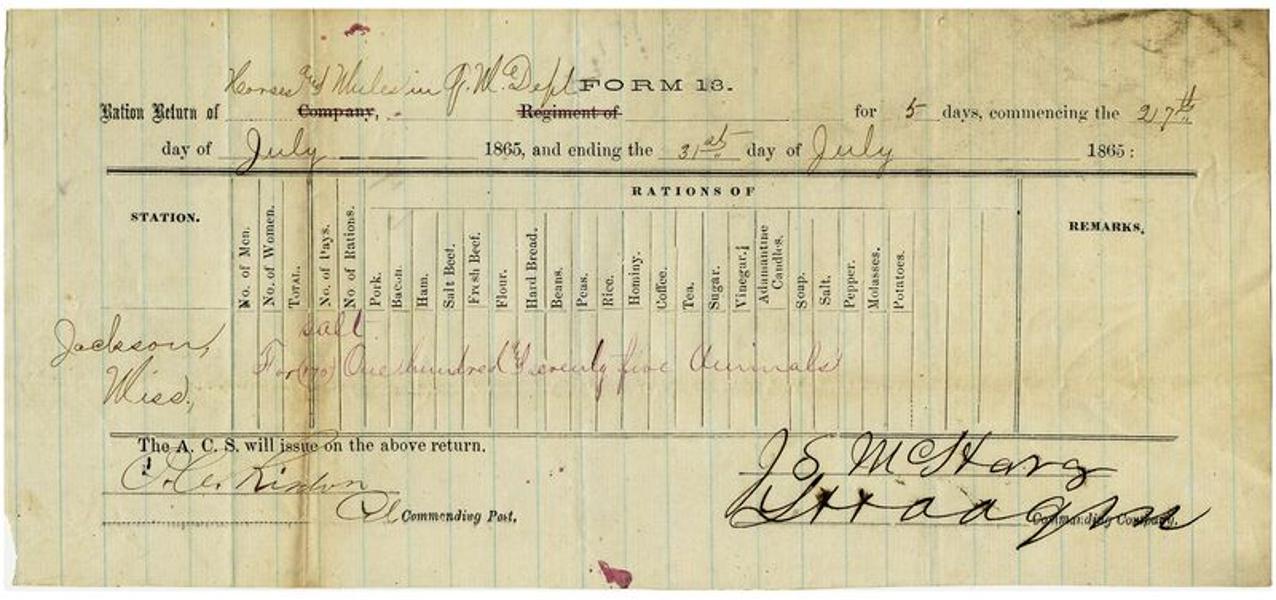 Horses and Mules in Q.M. Dept FORM 13.
Ration Return of Company, Regiment of for 5 days, commencing the 27th
day of July 1865, and ending the 31st day of July 1865:
STATION.
No. of Men.
No. of Women.
TOTAL.
No. of Days.
No. of Rations.
RATIONS OF
Pork.
Bacon.
Ham.
Salt Beef.
Fresh Beef.
Flour.
Hard Bread.
Beans.
Peas.
Rice.
Hominy.
Coffee.
Tea.
Sugar.
Vinegar.
Adamantine
Candles.
Soap.
Salt.
Pepper.
Molasses.
Potatoes.
REMARKS.
Jackson,
Miss.,
Salt
For One hundred & seventy five Animals
The A. C. S. will issue on the above return.
Col Commanding Post.
J S McHarg
Commanding Company.